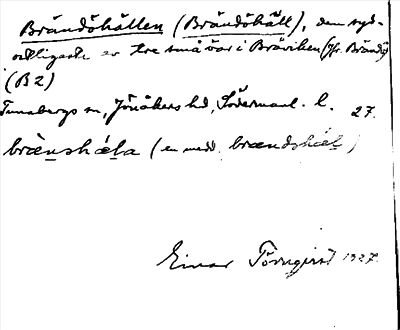 Brändöhällen (Brändöhäll), den syd-
ostligaste av tre små öar i Bråviken (jfr Brändö)
(B2)
Tunabergs sn, Jönåkers hd, Södermanl. l. 27.
brænshæla (en medd. brændshæl)
Einar Törnqvist 1927.